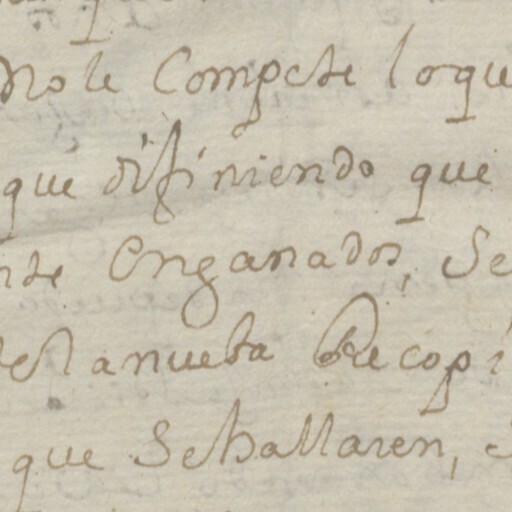 no le Compete loque
que difiniendo que
nte Enganados, Se
de la nueba Recopi
que Se hallaren,